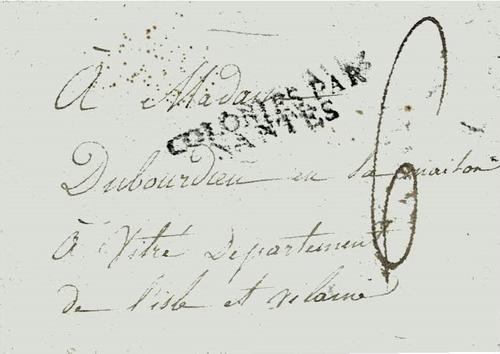 À Madame
COLONIES PAR
NANTES
6
Dubourdieu en sa maison
à Vitré Departement
de l'isle et vilaine